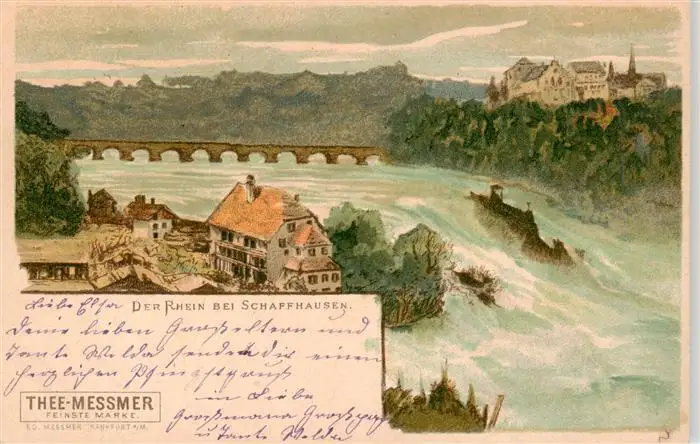 Liebe Elsa DER RHEIN BEI SCHAFFHAUSEN.
Deine lieben Großeltern und
Tante Welda senden dir einen
herzlichen Pfingstgruß
in Liebe
THEE-MESSMER
FEINSTE MARKE.
ED. MESSMER FRANKFURT A/M.
Großmama Großpapa
u Tante Welda